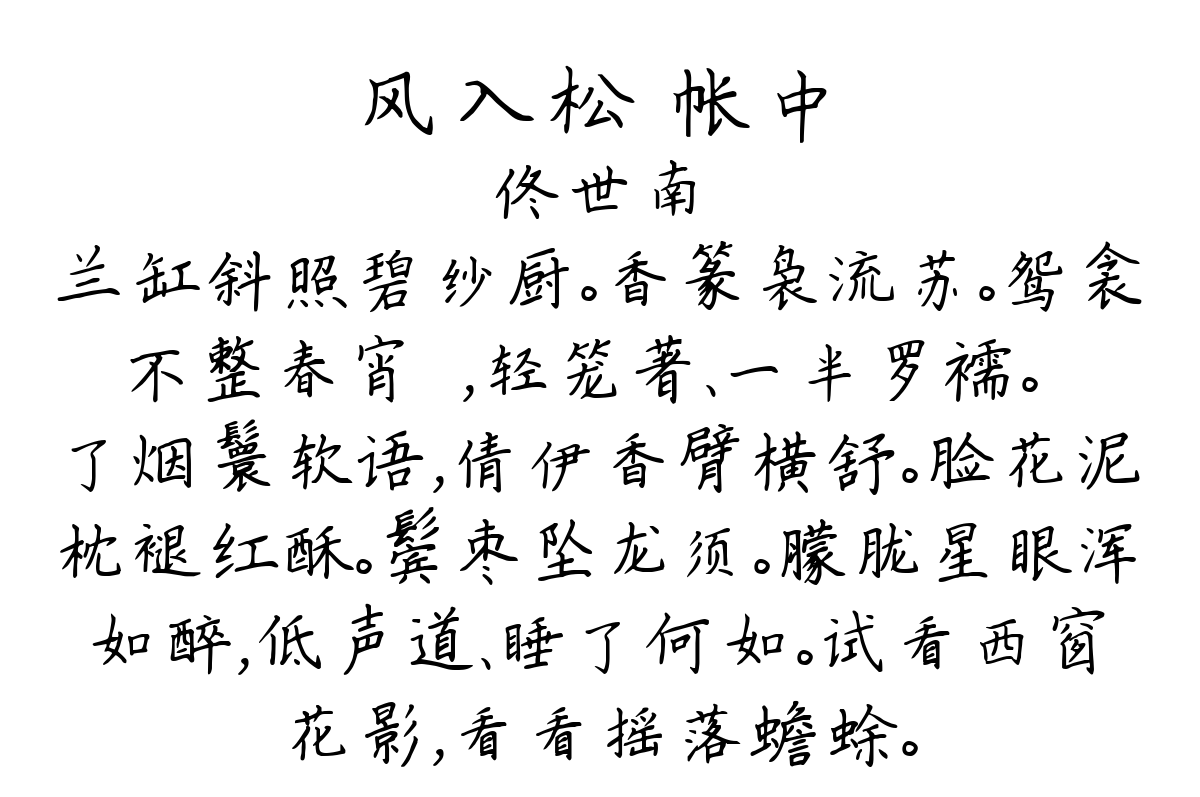 风入松 帐中
佟世南
兰缸斜照碧纱厨。香篆袅流苏。鸳衾
不整春宵 ,轻笼著、一半罗襦。
了烟鬟软语,倩伊香臂横舒。脸花泥
枕褪红酥。鬓枣坠龙须。朦胧星眼浑
如醉,低声道、睡了何如。试看西窗
花影,看看摇落蟾蜍。